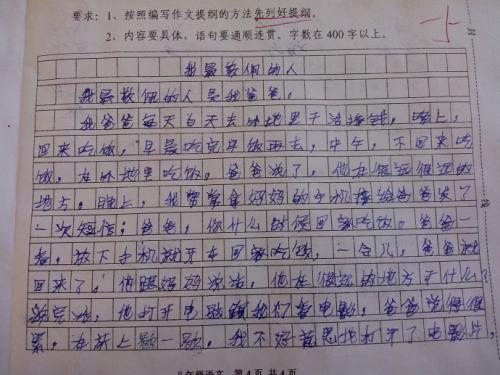 要求：1、按照编写作文提纲的方法先列好提纲。
2、内容要具体，语句要通顺连贯。字数在 400 字以上。
我最敬佩的人
我最敬佩的人是我爸爸。
我爸爸每天白天去外地里干活挣钱，晚上，
回来吃饭，早晨吃完早饭再去，中午，不回来吃
饭，在外地里吃饭，爸爸说了，他在很远很远的
地方。晚上，我常常拿妈妈的手机给爸爸发了
一次短信：爸爸，你什么时候回家吃饭。爸爸一
看，放下手机就开车回家吃饭，一会儿，爸爸就
回来了，他跟妈妈说话，他在很远的地方干什么？
说完话，他打开电脑跟我们看电影，爸爸说很很
累，在床上歇一歇，我不好意思地打开了电影片，
年级语文 第4页 共4页
线